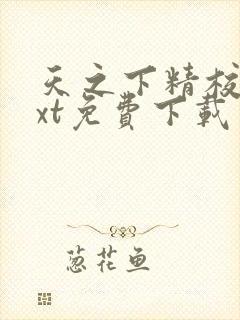 天之下精校
xt免費下載
葱花鱼